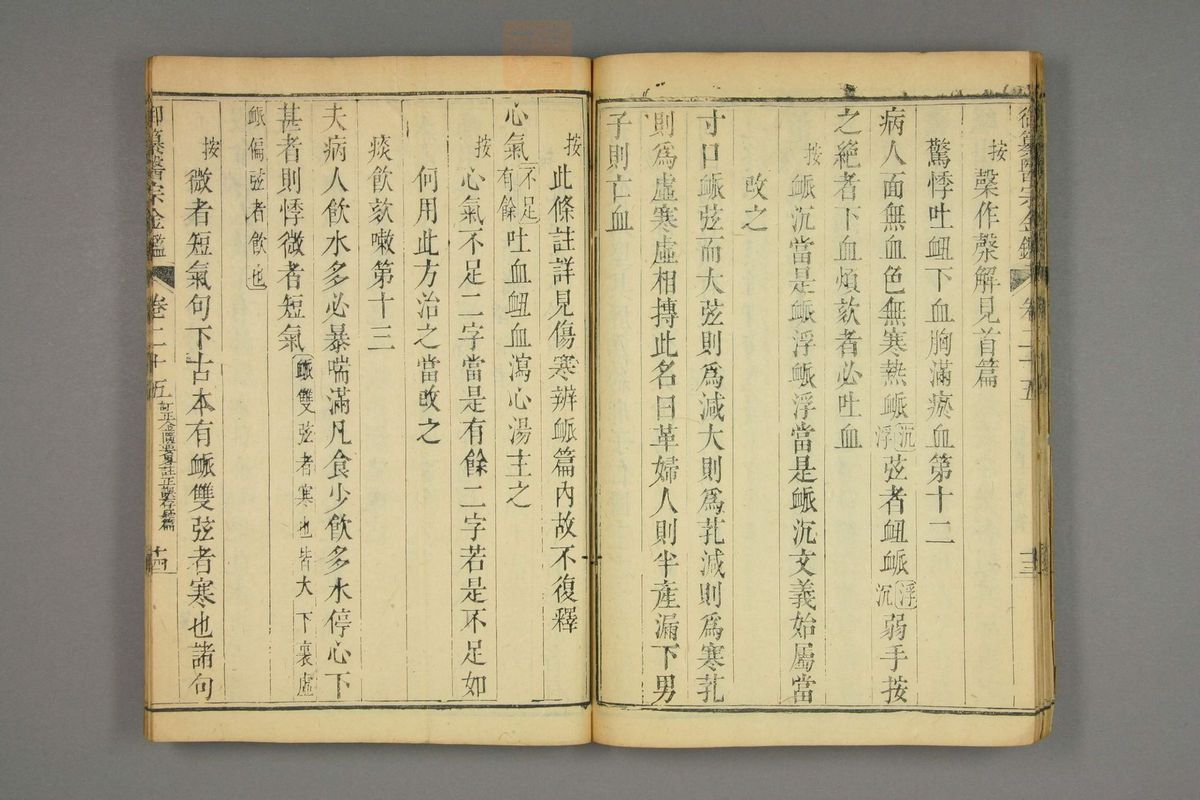 御纂醫宗金鑑 卷二十五 十三
按 槩作槃解見首篇
驚悸吐衄下血胸滿瘀血第十二
病人面無血色無寒熱脈沉浮弦者衄脈浮沉弱手按
之絕者下血煩欬者必吐血
按 脈沉當是脈浮脈浮當是脈沉文義始屬當
改之
寸口脈弦而大弦則為減大則為芤減則為寒芤
則為虛寒虛相摶此名曰革婦人則半產漏下男
子則亡血
按 此條註詳見傷寒辨脈篇內故不復釋
心氣不足有餘吐血衄血瀉心湯主之
按 心氣不足二字當是有餘二字若是不足如
何用此方治之當改之
痰飲欬嗽第十三
夫病人飲水多必暴喘滿凡食少飲多水停心下
甚者則悸微者短氣脈雙弦者寒也皆大下裏虛
脈偏弦者飲也
按 微者短氣句下古本有脈雙弦者寒也諸句
御纂醫宗金鑑 卷二十五 訂正金匱要畧註正誤存疑篇 十四